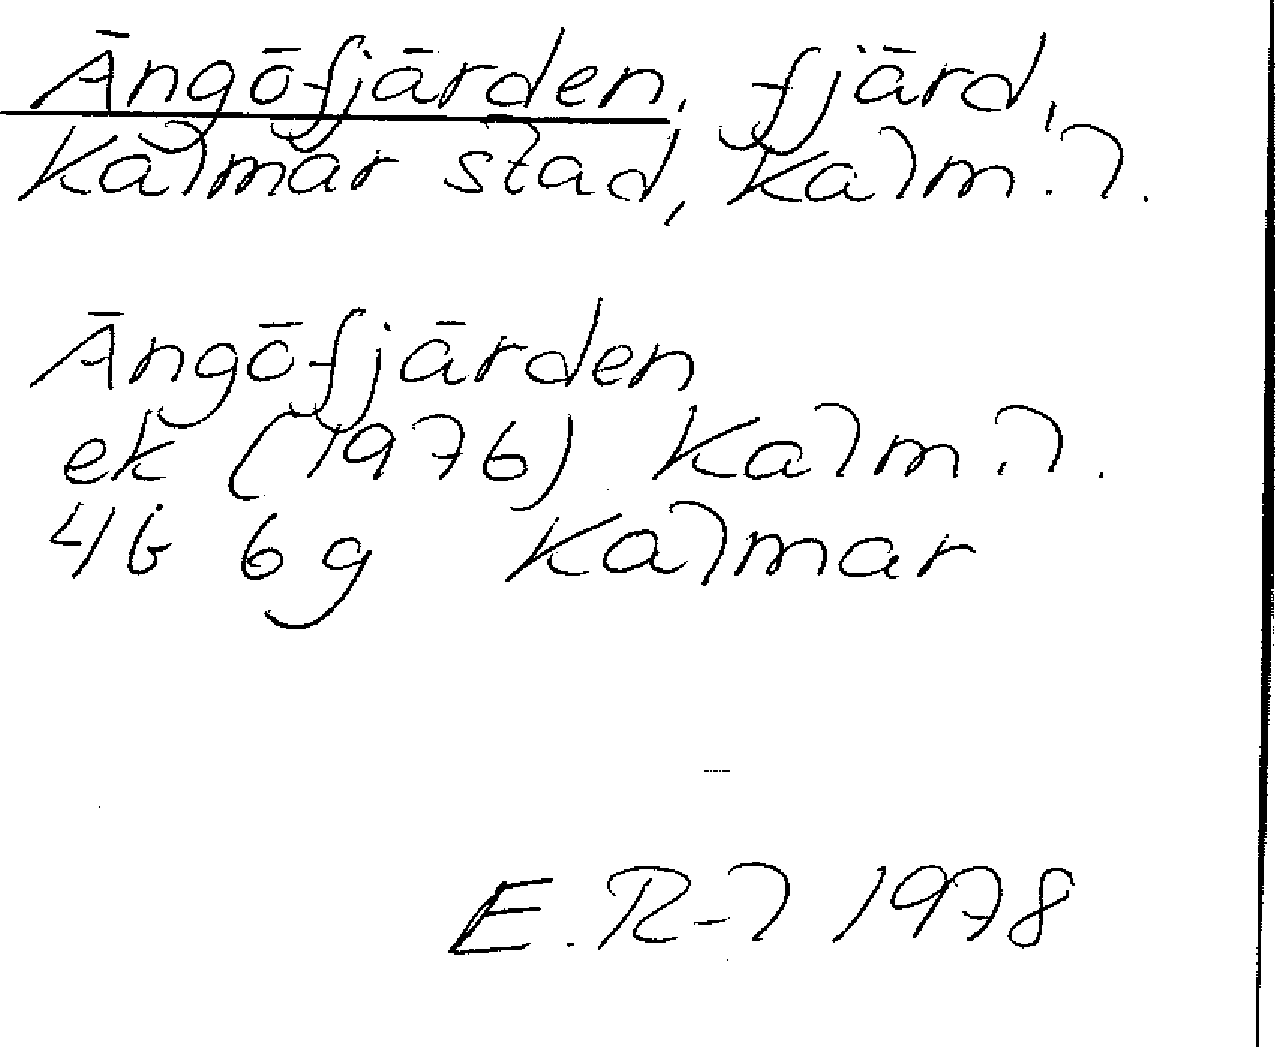 Ängöfjärden, fjärd,
Kalmar stad, Kalm. l.
Ängöfjärden
ek (1976) Kalm. l.
4G 6g Kalmar
E. R-l 1978